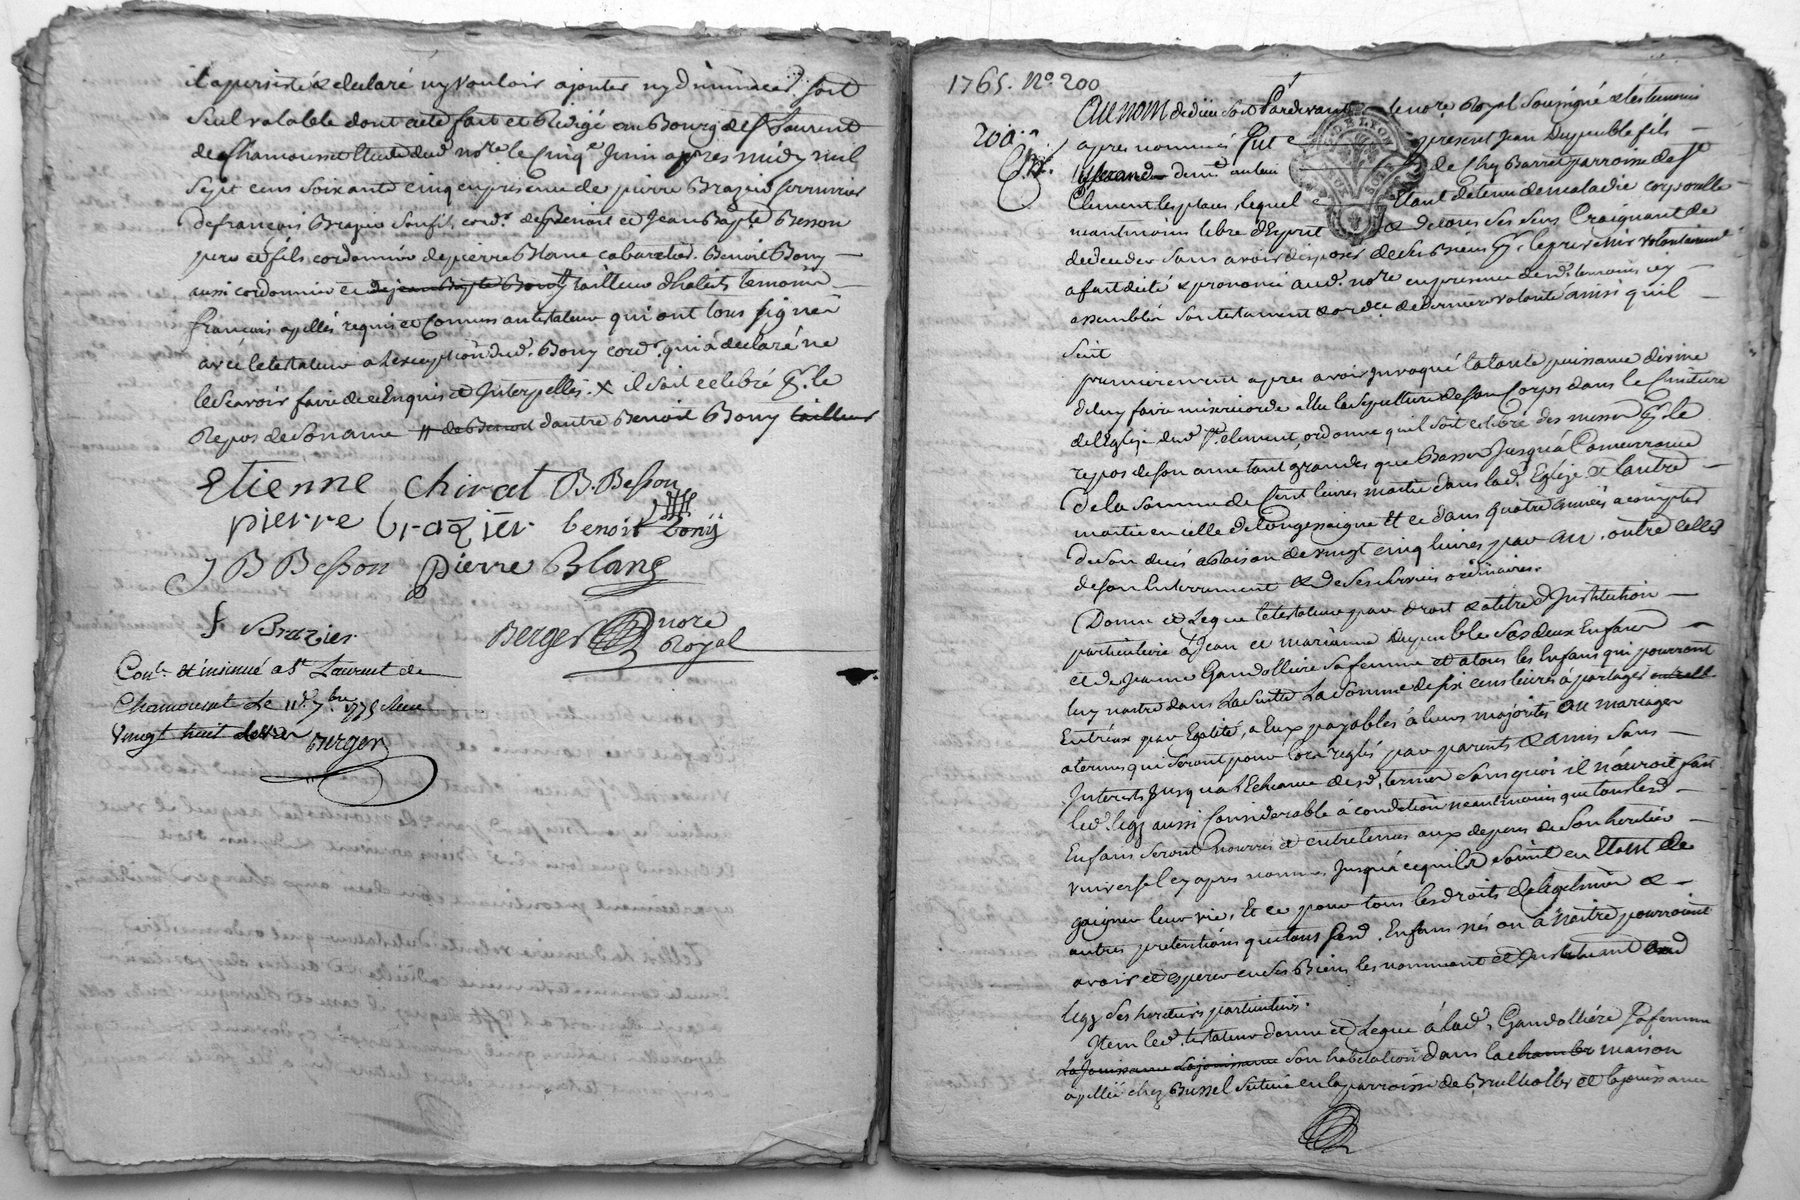 il a persisté & declaré ny vouloir ajouter ny diminuer. soit
seul valable dont acte fait et Redigé au Bourg de St Laurent
de Chamousset Etude dud. nore. le Cinqe. Juin apres midy mil
sept cens soixante cinq en presence de pierre Brazier serrurier
de françois Brazier son fils, cordr. de Benoit et Jean Bapte. Besson
pere et fils cordonnier de pierre Blanc cabaretier. Benoit Bony
aussi cordonnier et de Jean Bapte Bony tailleur d'habits temoins
françois apellés requis et Connus au testateur qui ont tous signé
avec le testateur a lexception dud. Bony cordr. qui a declaré ne
le sçavoir faire de ce Enquis et Interpellés. x il soit celebré pr. le
Repos de son ame # de Benoit d'autre Benoit Bony tailleur
Etienne chirat B. Besson
pierre brazier benoit bony
J B Besson pierre Blanc
f Brazier Berger nore Royal
Conlé & insinué a St Laurent de
Chamousset Le
Vingt huit Berger
1765. No. 200
200e.
Au nom de dieu soit Pardevant le nore. Royal soussigné & les temoins
apres nommés fut present Jean Dupeuble fils
demt. au lieu de chez Barret parroisse de St
Clement les places, lequel Etant detenu de maladie corporelle
neantmoins libre d'Esprit & de tous ses sens Craignant de
deceder sans avoir disposé de ses Biens pr. le prevenir volontairement
a fait dicté & prononcé aud. nore en presence desd. temoins icy
assemblés son testament & ordce. de derniere volonté ainsi quil
suit
premierement apres avoir Invoqué la toute puissance divine
de luy faire misericorde a Elu la sepulture de son Corps dans le Cimitiere
de l'Eglise dud. St. Clement, ordonne quil soit celebré des messes pr. le
repos de son ame tant grandes que Basses Jusqu'a Concurrance
de la somme de Cent livres moitié dans lad. Eglise & l'autre
moitié en celle de Longessaigne Et ce dans quatre années a compter
de son deces a Raison de vingt cinq livres par an. outre celles
de son Enterrement & de ses services ordinaires.
Donne et Legue le testateur par droit & a titre d'Institution
particuliere a Jean et marianne Dupeuble ses deux Enfans
et de Jeanne Gandolliere sa femme et a tous les Enfans qui pourront
luy naitre dans la suite La somme de six cens livres a partager
Entr'eux par Egalité, a Eux payables a leurs majorités ou mariages
a termes qui seront pour lors reglés par parents & amis sans
Interets Jusqu'a l'Echeance desd. termes sans quoi il n'auroit fait
led. legs aussi Considerable a condition neantmoins que tous lesd.
Enfans seront nourris et entretenus aux depens de son heritier
universel cy apres nommé Jusqu'a ce quils soient en Etat de
gaigner leur vie, Et ce pour tous les droits de legitime &
autres pretentions que tous sesd. Enfans nés ou a naitre pourroient
avoir et esperer en ses Biens les nommant et Instituant aud
legs ses heritiers particuliers.
Item led. testateur donne et Legue a lad. Gandolliére sa femme
La Jouissance La jouissance son habitation dans la chambre maison
apellée chez Bussel scituée en la parroisse de Brulliolles et la jouissance